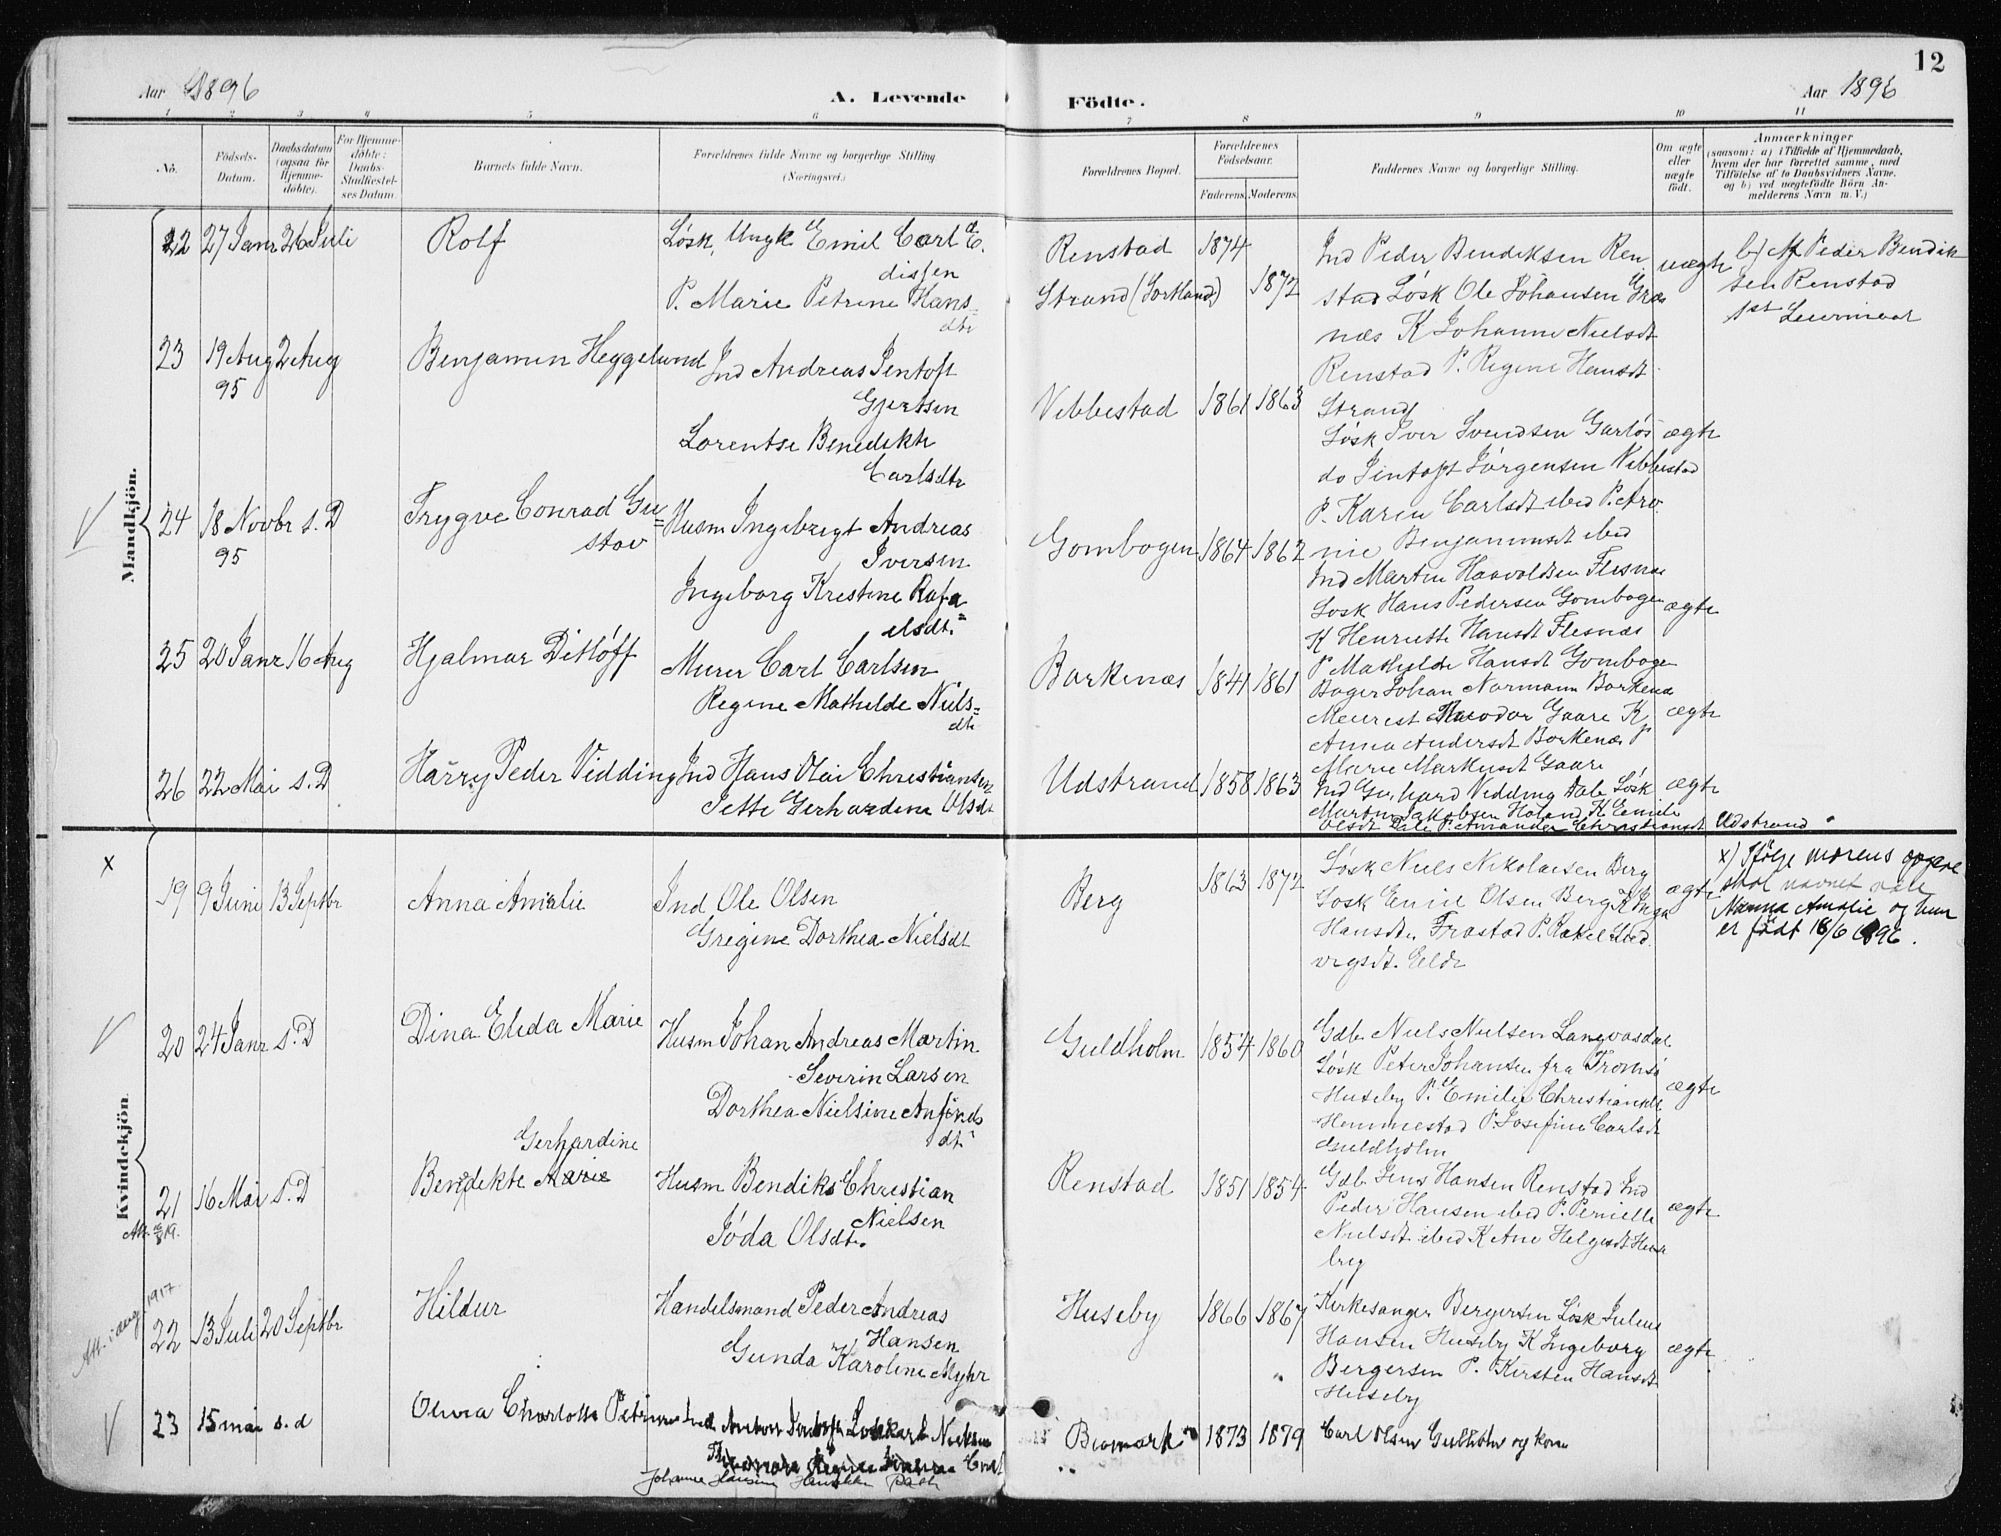 12
Aar 1896
A. Levende
Födte.
Aar 1896
1 2 3 4 5 6 7 8 9 10 11
No.
Födsels-
Datum.
Daabsdatum
(ogsaa for
Hjemme-
döbte).
For Hjemme-
döbte:
Daabs-
Stadfæstel-
ses Datum.
Barnets fulde Navn.
Forældrenes fulde Navne og borgerlige Stilling
(Næringsvei.)
Forældrenes Bopæl.
Forældrenes
Födselsaar.
Faderens. Moderens.
Faddernes Navne og borgerlige Stilling.
Om ægte
eller
uægte
födt.
Anmærkninger
(saasom: a) i Tilfælde af Hjemmedaab,
hvem der har forrettet samme, med
Tilföielse af to Daabsvidners Navne.
og b) ved uægtefödte Börn An-
melderens Navn m. V.)
Mandkjön.
22 27 Janr 26 Juli
Rolf
Løsk. Ungk. Emil Carl E.
dissen
P. Marie Petrine Hans=
dtr
Renstad 1874
Strand (Sortland) 1872
Ind Peder Bendiksen Ren
stad Løsk Ole Johansen Græs
næs K Johanne Nielsdt
Renstad P. Regine Hansdt
Strand
uægte
b) Af Peder Bendik
sen Renstad
1st Leiermaal
23 19 Aug 2 Aug
95
Benjamin Heggelund
Ind Andreas Jentoft
Gjertsen
Lorentse Benedikte
Carlsdtr
Vebbestad 1861 1863
Løsk Iver Svendsen Garløs
do Jentoft Jørgensen Vebbestad
P. Karen Carlsdt ibid P. Aro
nie Benjaminsdt ibid
ægte
24 18 Novbr s. D
95
Trygve Conrad Gu=
stav
Husm Ingebrigt Andreas
Iversen
Ingeborg Kristine Rafa=
elsdt.
Gombogen 1864 1862
Ind Martin Haavoldsen Flesnæs
Løsk Hans Pedersen Gombogen
K Henriette Hansdt Flesnæs
P Mathilde Hansdt Gombogen
ægte
25 20 Janr 16 Aug
Hjalmar Ditløff
Murer Carl Carlsen
Regine Mathilde Niels=
dtr
Borkenæs 1841 1861
Bager Johan Normann Borkenæs
Theodor Gaare K
Anna Andersdt Borkenæs P
Marie Markusdt Gaare
ægte
26 22 Mai s. D
Harry Peder Vidding
Ind Hans Olai Christiansen
Jette Gerhardine Olsdt
Udstrand 1858 1863
Ind Gerhard Vedding Dale Løsk
Martin Jakobsen Holand K Emilie
Olsdt Dale P. Amanda Christiansdt Udstrand
ægte
Kvindekjön.
x
19 9 Juni 13 Septbr
Anna Amalie
Ind Ole Olsen
Gregine Dorthea Nielsdt
Berg 1863 1872
Løsk Niels Nikolaisen Berg
Løsk Emil Olsen Berg K Inga
Hansdtr. Frostad P. Rakel Lud
vigsdt. Elde
ægte
x) Ifølge morens opgave
skal navnet være
Nanna Amalie og hun
er født 18/6 1896.
20 24 Janr s. D
Dina Elida Marie
Husm Johan Andreas Martin
Severin Larsen
Dorthea Nielsine Anfinds
dt.
Guldholm 1854 1860
Gdb. Niels Nielsen Langvasdal
Løsk Peter Johansen fra Tromsø
Huseby P. Emilie Christiansdt
Hemmestad P. Josefine Carlsdt
Guldholm
ægte
21 16 Mai s. D
Gerhardine
Benedikte Marie
Husm Bendiks Christian
Nielsen
Jøda Olsdtr.
Renstad 1851 1854
Gdb. Jens Hansen Renstad Ind
Peder Hansen ibid P. Pernille
Nielsdt ibid K Ane Helgesdt Huse
by
ægte
Att. i aug. 1917.
22 13 Juli 20 Septbr
Hildur
Handelsmand Peder Andreas
Hansen
Gunda Karoline Myhr
Huseby 1866 1867
Kirkesanger Bergersen Løsk Julius
Hansen Huseby K Ingeborg
Bergersen P. Kirsten Hansdt
Huseby
ægte
23 15 mai s. d
Olivia Charlotte Petrine
Ind Anton Jentoft Løskarl Nielsen
Johanne Hansine
1873 1879
Carl Olsen Gulholm og kone